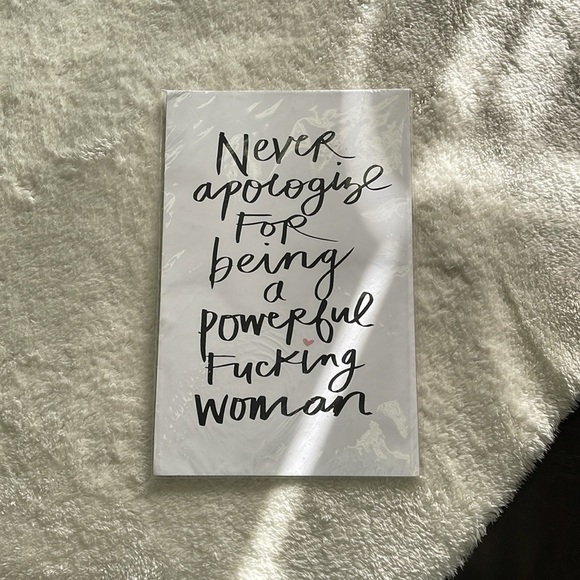 Never
apologize
For
being
a
powerful
Fucking
woman